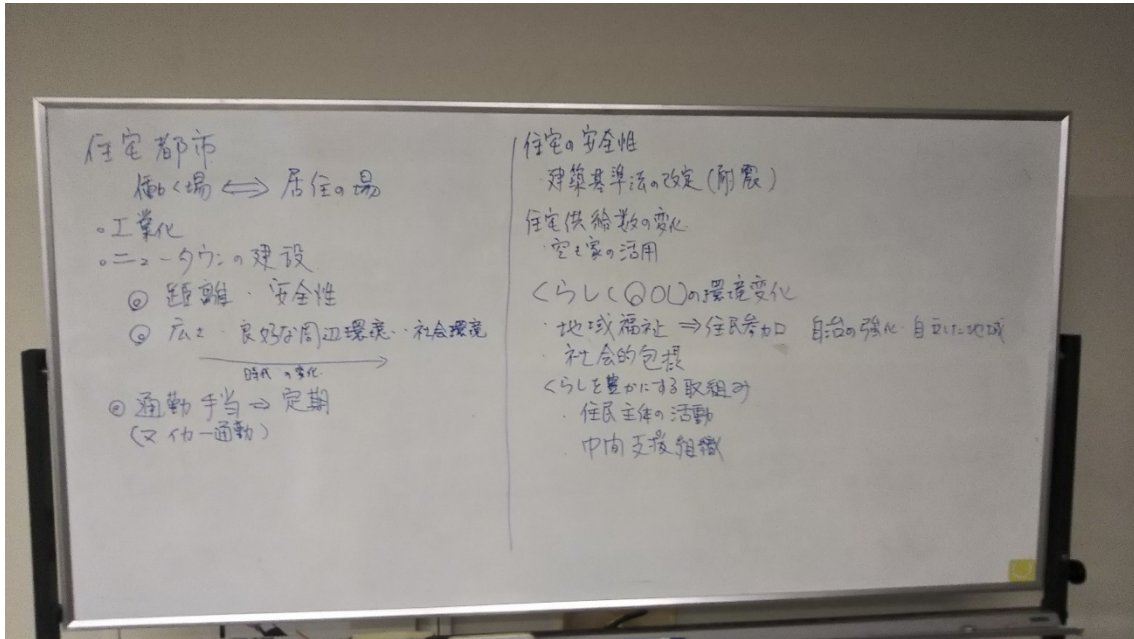 住宅都市
働く場 ⇔ 居住の場
。工業化
。ニュータウンの建設
◎ 距離・安全性
◎ 広さ・良好な周辺環境・・社会環境
時代の変化
◎ 通勤手当⇒定期
(マイカー通勤)
住宅の安全性
・建築基準法の改定(耐震)
住宅供給数の変化
・空き家の活用
くらし(QOL)の環境変化
・地域福祉⇒住民参加 自治の強化・自立した地域
・社会的包摂
くらしを豊かにする取組み
・住民主体の活動
・中間支援組織